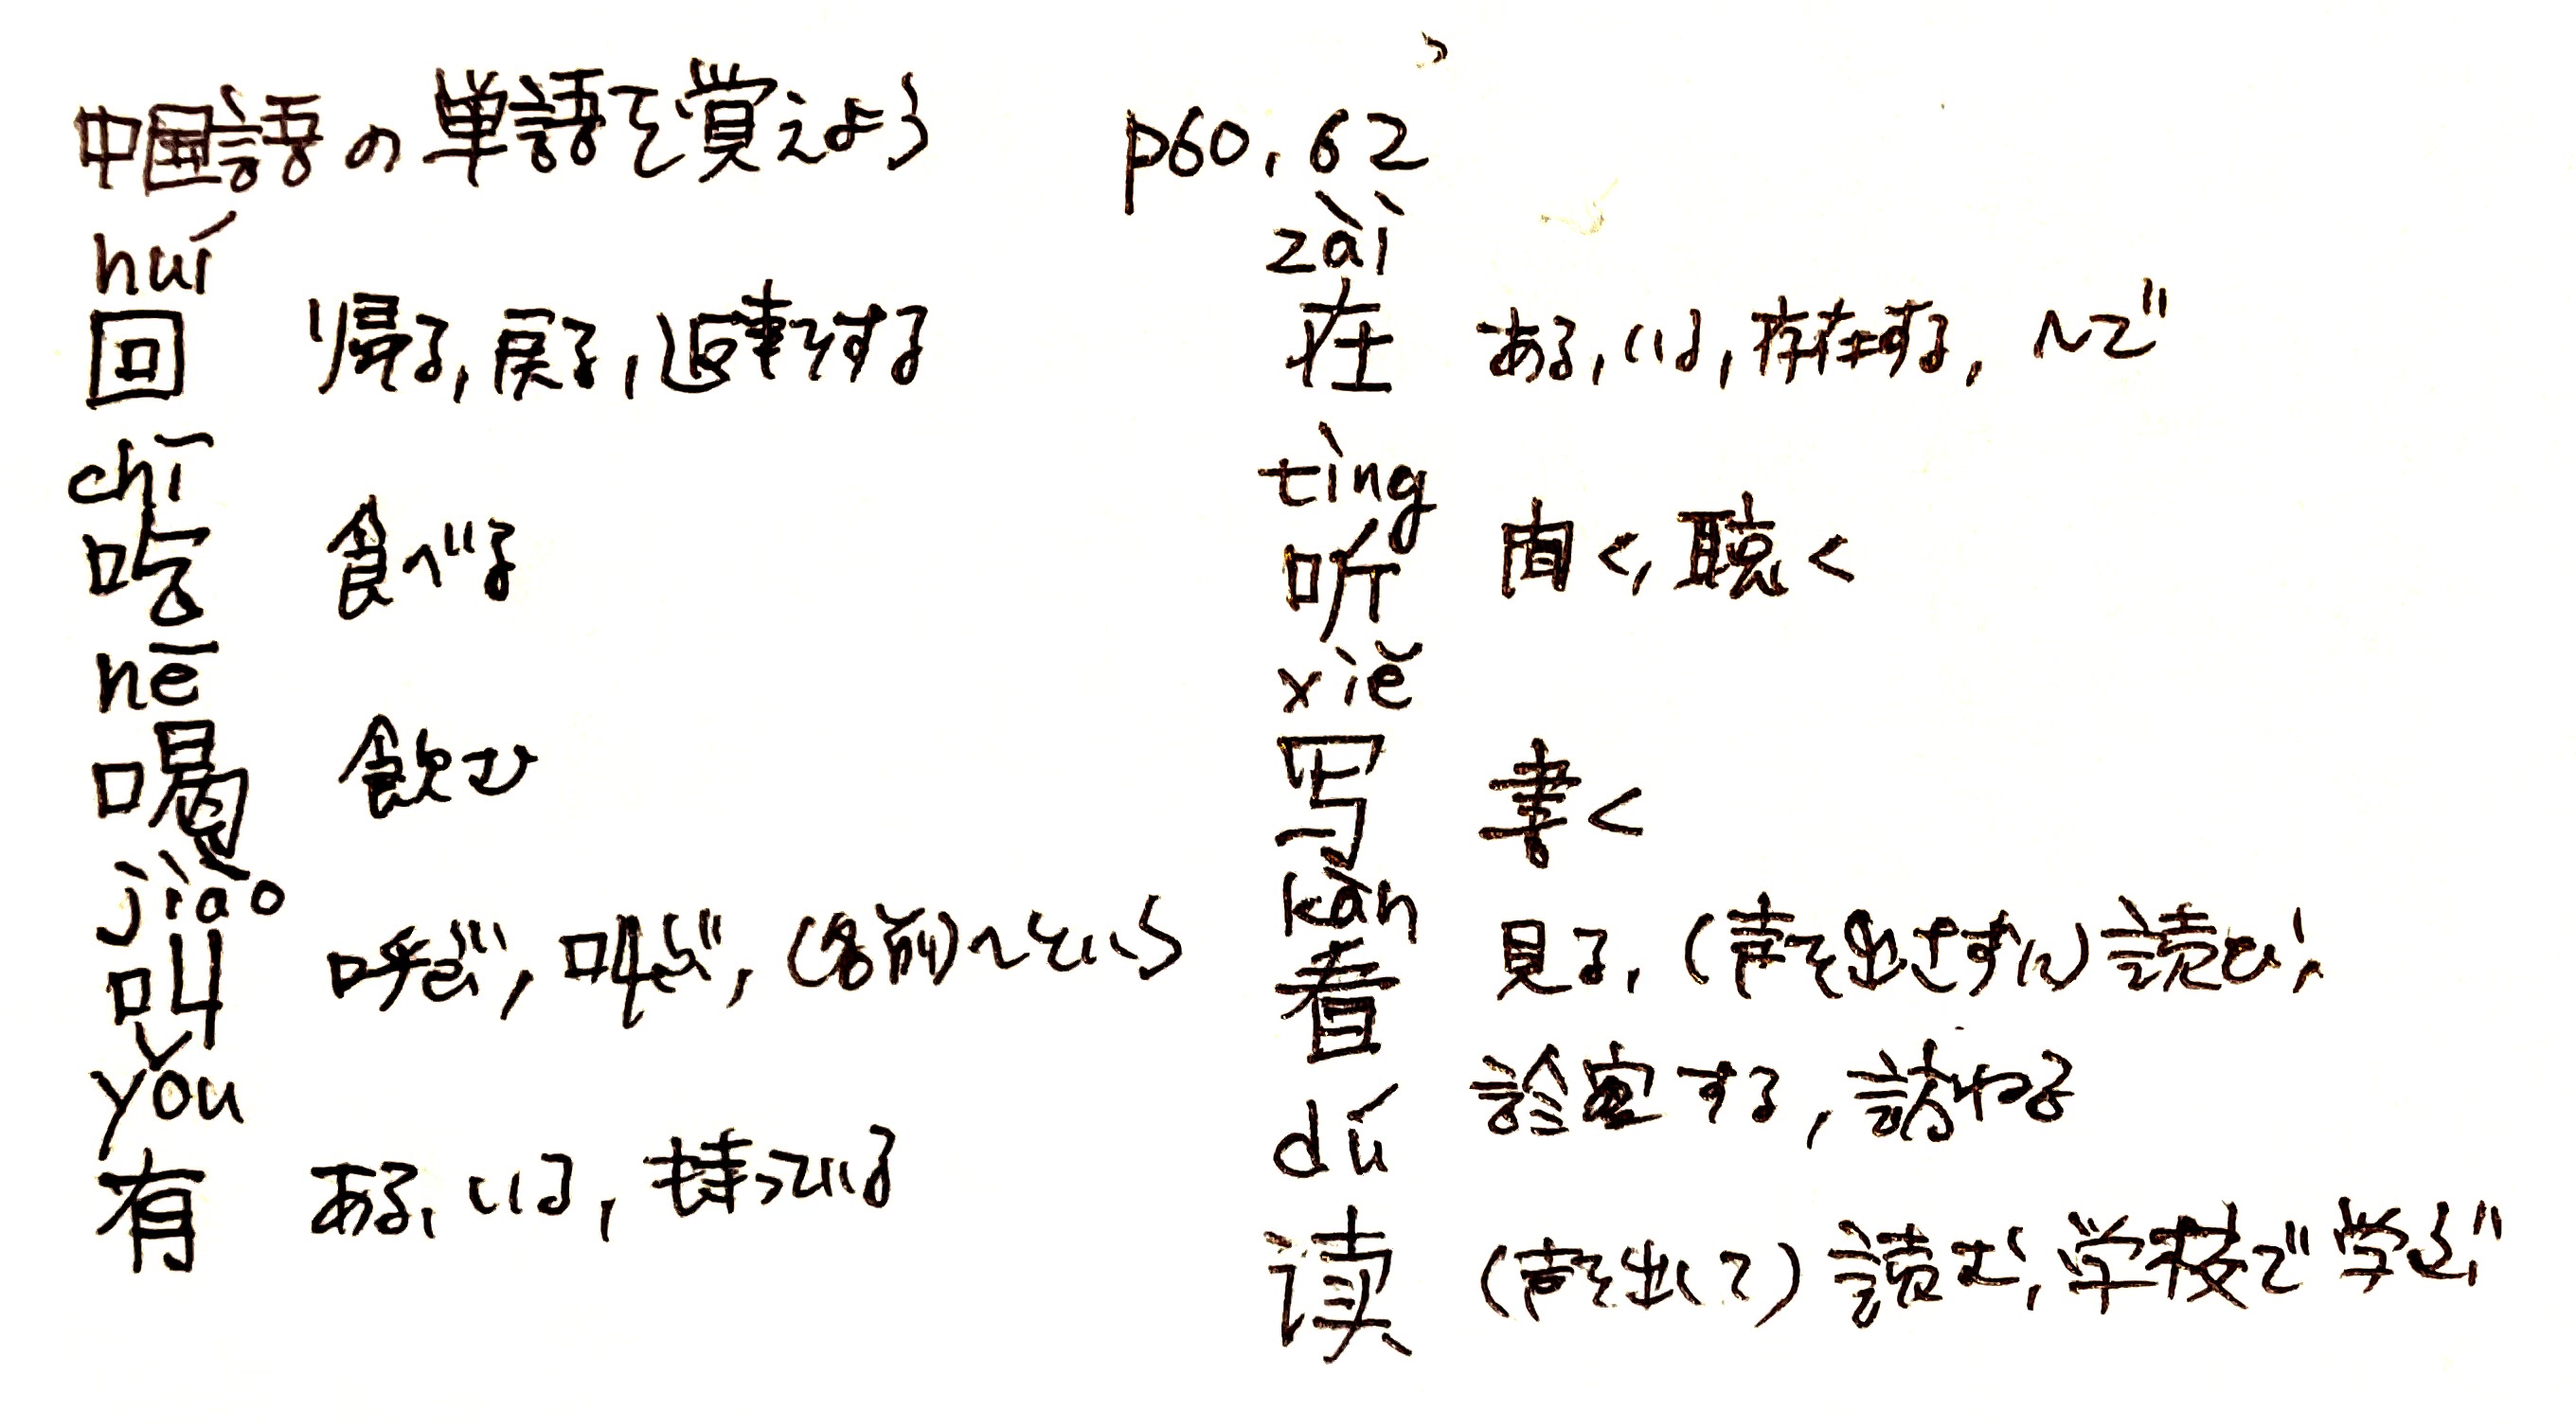 中国語の単語を覚えよう p60, 62
huí
回 帰る, 戻る, 返事をする
chī
吃 食べる
hē
喝 飲む
jiào
叫 呼ぶ, 叫ぶ, (名前)〜という
yǒu
有 ある, いる, 持っている
zài
在 ある, いる, 存在する, 〜で
tìng
听 聞く, 聴く
xiě
写 書く
kàn
看 見る, (声を出さずに)読む,
診察する, 訪ねる
dú
读 (声を出して)読む, 学校で学ぶ